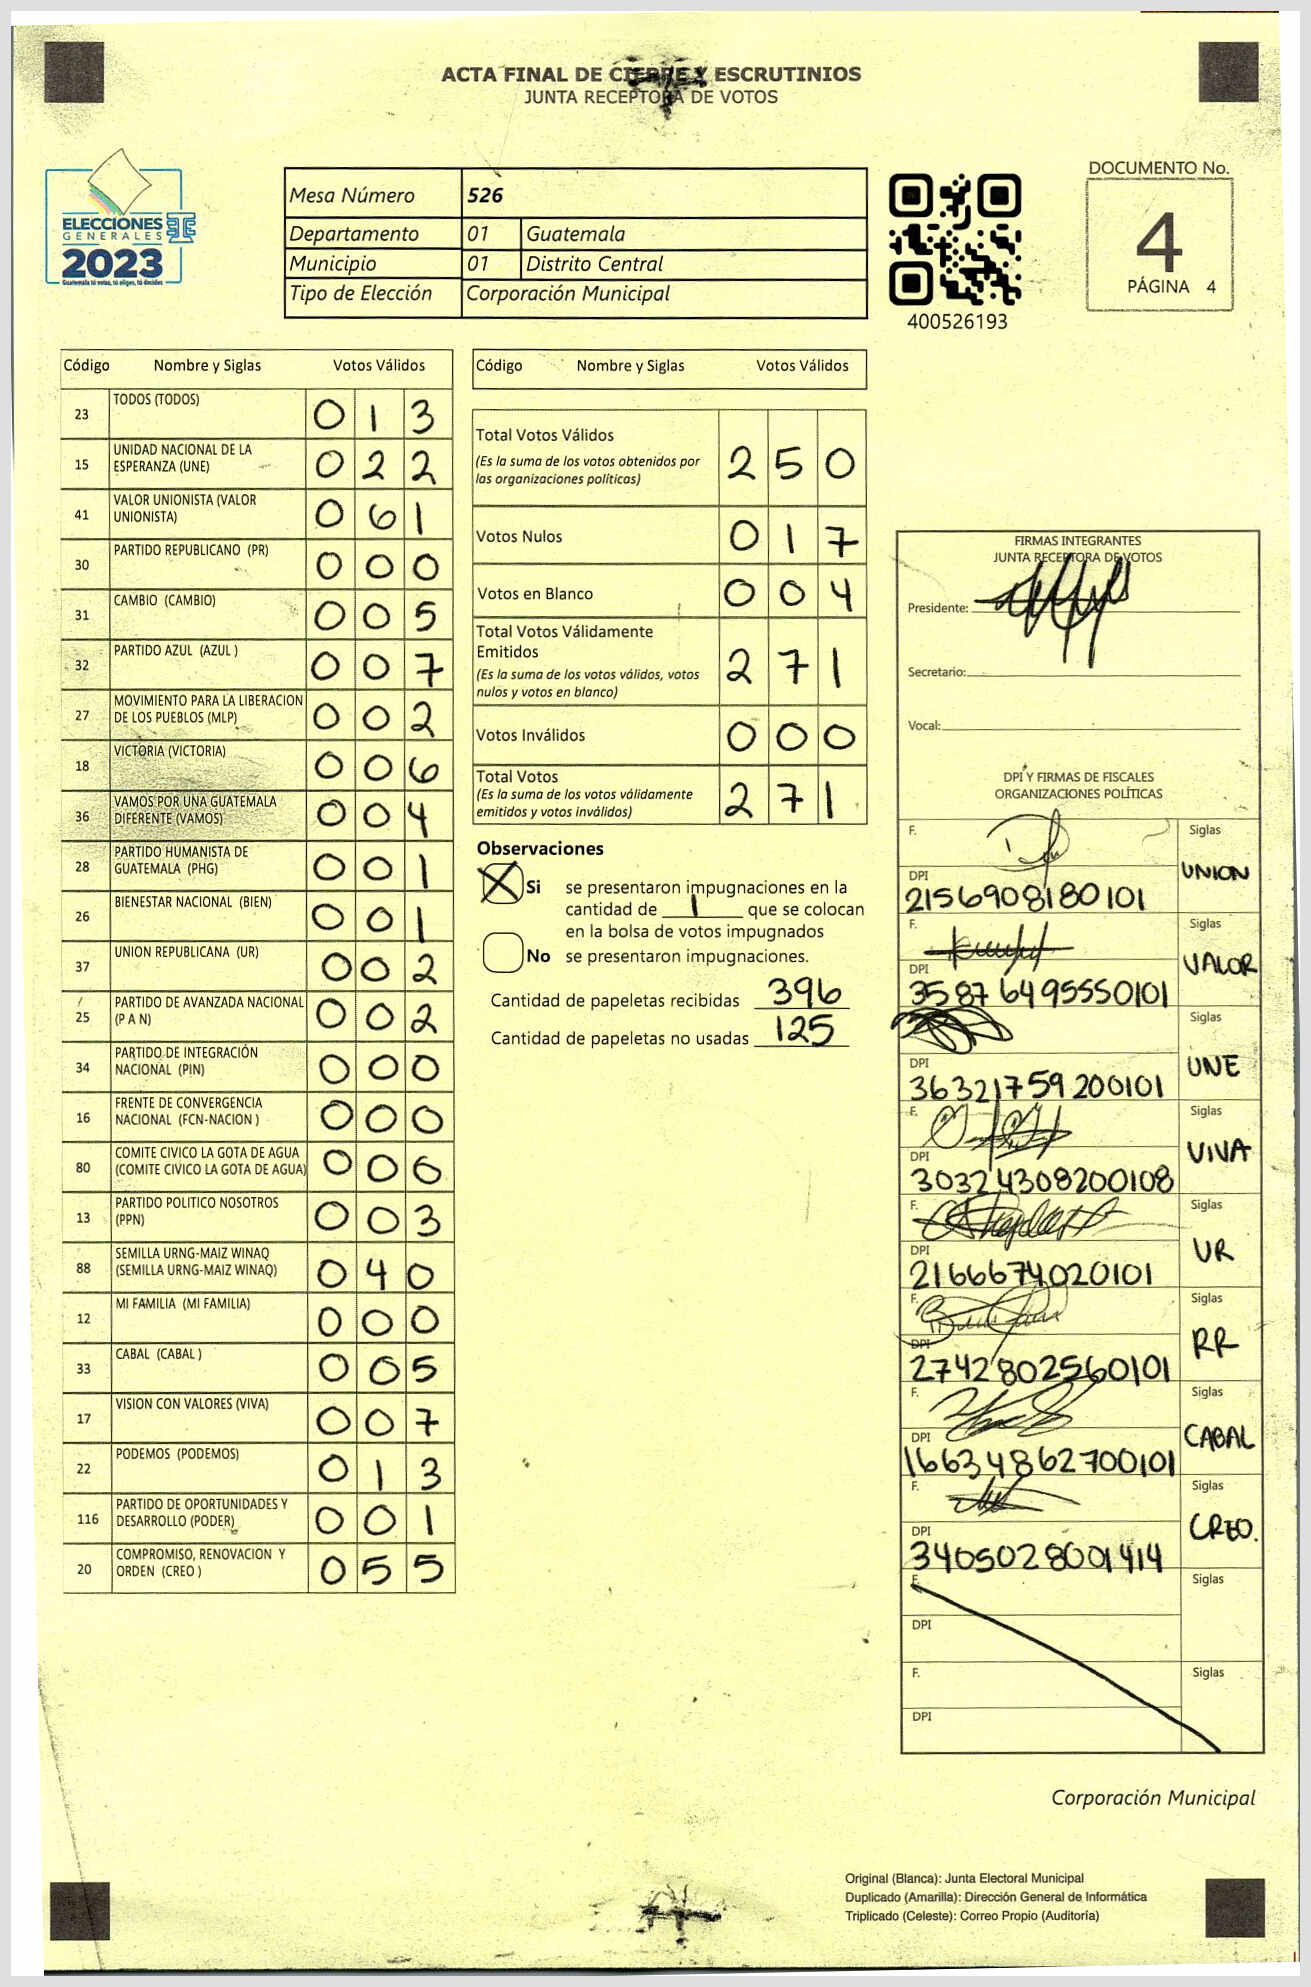 ACTA FINAL DE CIERRE Y ESCRUTINIOS
JUNTA RECEPTORA DE VOTOS
ELECCIONES
GENERALES
2023
Guatemala tú votas, tú eliges, tú decides
Mesa Número 526
Departamento 01 Guatemala
Municipio 01 Distrito Central
Tipo de Elección Corporación Municipal
400526193
DOCUMENTO No.
4
PÁGINA 4
Código Nombre y Siglas Votos Válidos
23 TODOS (TODOS) 0 1 3
15 UNIDAD NACIONAL DE LA ESPERANZA (UNE) 0 2 2
41 VALOR UNIONISTA (VALOR UNIONISTA) 0 6 1
30 PARTIDO REPUBLICANO (PR) 0 0 0
31 CAMBIO (CAMBIO) 0 0 5
32 PARTIDO AZUL (AZUL ) 0 0 7
27 MOVIMIENTO PARA LA LIBERACION DE LOS PUEBLOS (MLP) 0 0 2
18 VICTORIA (VICTORIA) 0 0 6
36 VAMOS POR UNA GUATEMALA DIFERENTE (VAMOS) 0 0 4
28 PARTIDO HUMANISTA DE GUATEMALA (PHG) 0 0 1
26 BIENESTAR NACIONAL (BIEN) 0 0 1
37 UNION REPUBLICANA (UR) 0 0 2
25 PARTIDO DE AVANZADA NACIONAL (P A N) 0 0 2
34 PARTIDO DE INTEGRACIÓN NACIONAL (PIN) 0 0 0
16 FRENTE DE CONVERGENCIA NACIONAL (FCN-NACION ) 0 0 0
80 COMITE CIVICO LA GOTA DE AGUA (COMITE CIVICO LA GOTA DE AGUA) 0 0 0
13 PARTIDO POLITICO NOSOTROS (PPN) 0 0 3
88 SEMILLA URNG-MAIZ WINAQ (SEMILLA URNG-MAIZ WINAQ) 0 4 0
12 MI FAMILIA (MI FAMILIA) 0 0 0
33 CABAL (CABAL ) 0 0 5
17 VISION CON VALORES (VIVA) 0 0 7
22 PODEMOS (PODEMOS) 0 1 3
116 PARTIDO DE OPORTUNIDADES Y DESARROLLO (PODER) 0 0 1
20 COMPROMISO, RENOVACION Y ORDEN (CREO ) 0 5 5
Código Nombre y Siglas Votos Válidos
Total Votos Válidos 2 5 0
(Es la suma de los votos obtenidos por
las organizaciones políticas)
Votos Nulos 0 1 7
Votos en Blanco 0 0 4
Total Votos Válidamente
Emitidos 2 7 1
(Es la suma de los votos válidos, votos
nulos y votos en blanco)
Votos Inválidos 0 0 0
Total Votos 2 7 1
(Es la suma de los votos válidamente
emitidos y votos inválidos)
Observaciones
X Si se presentaron impugnaciones en la
cantidad de 1 que se colocan
en la bolsa de votos impugnados
No se presentaron impugnaciones.
Cantidad de papeletas recibidas 396
Cantidad de papeletas no usadas 125
FIRMAS INTEGRANTES
JUNTA RECEPTORA DE VOTOS
Presidente:
Secretario:
Vocal:
DPI Y FIRMAS DE FISCALES
ORGANIZACIONES POLÍTICAS
F. Siglas
DPI UNION
2156908180101
F. Siglas
DPI VALOR
3587649555​0101
Siglas
DPI UNE
3632175920​0101
F. Siglas
DPI VIVA
303243082​00108
F. Siglas
DPI UR
2166674020101
F. Siglas
DPI RR
2742802560101
F. Siglas
DPI CABAL
1663486270​0101
F. Siglas
DPI CREO.
3405028001414
F. Siglas
DPI
F. Siglas
DPI
Corporación Municipal
Original (Blanca): Junta Electoral Municipal
Duplicado (Amarilla): Dirección General de Informática
Triplicado (Celeste): Correo Propio (Auditoría)